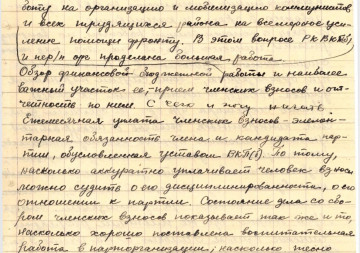 боту на организацию и мобилизацию коммунистов
и всех трудящихся района на всемерное уси-
ление помощи фронту. В этом вопросе РК ВКП(б)
и пер/п орг проделана большая работа.
Обзор финансовой бюджетной работы и наиболее
важный участок ее, прием членских взносов и от-
четность по ним. С кого и
Ежемесячная уплата членских взносов - элемен-
тарная обязанность члена и кандидата пар-
тии, обусловленная уставом ВКП(б). По тому,
насколько аккуратно уплачивает человек взносы
можно судить о его дисциплинированности, о его
отношении к партии. Состояние дела со сбо-
ром членских взносов показывает так же и то,
насколько хорошо поставлена воспитательная
работа в парторганизации, насколько тесно